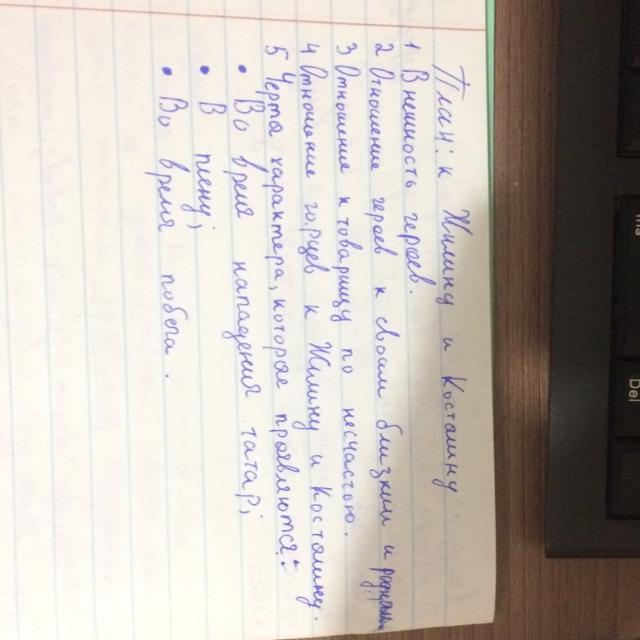 План: к Жилину и Костылину
1 Внешность героев.
2 Отношение героев к своим близким и родным
3 Отношение к товарищу по несчастью.
4 Отношение горцев к Жилину и Костылину.
5 Черта характера, которое проявляются:
• Во время нападения татар;
• В плену;
• Во время побега.
Ins
Del